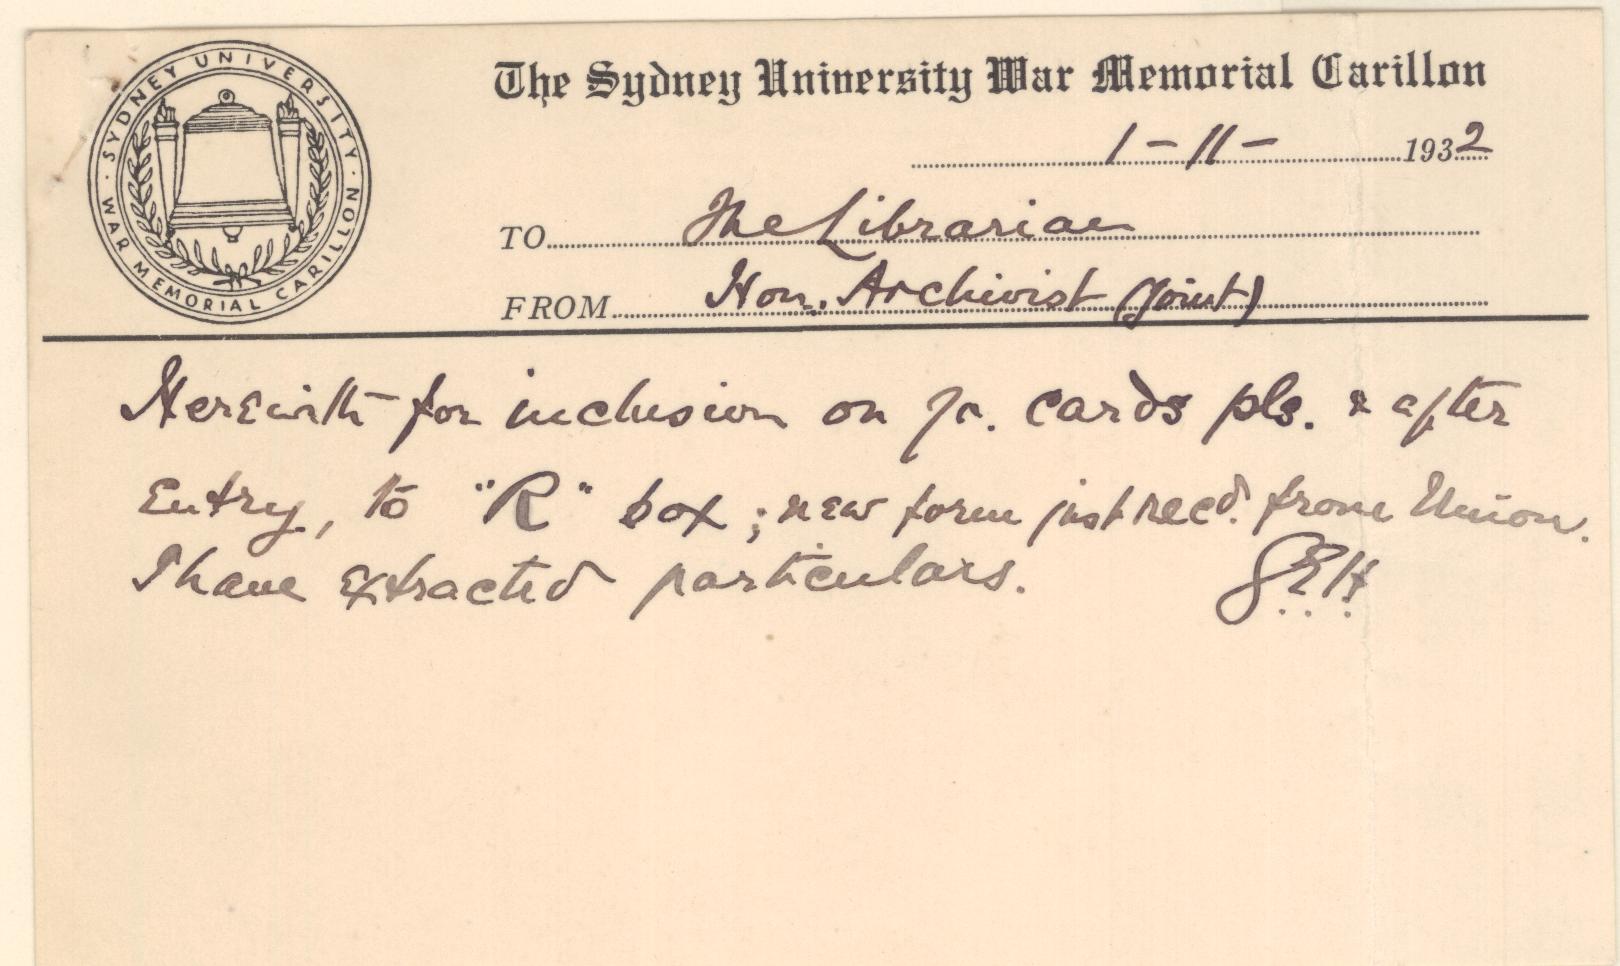 SYDNEY UNIVERSITY · WAR MEMORIAL CARILLON ·
The Sydney University War Memorial Carillon
1 - 11 - 1932
TO The Librarian
FROM Hon. Archivist (Joint)
Herewith for inclusion on cards pls. & after
Entry, to "R" box; new form just recd. from Union.
I have extracted particulars. GEH